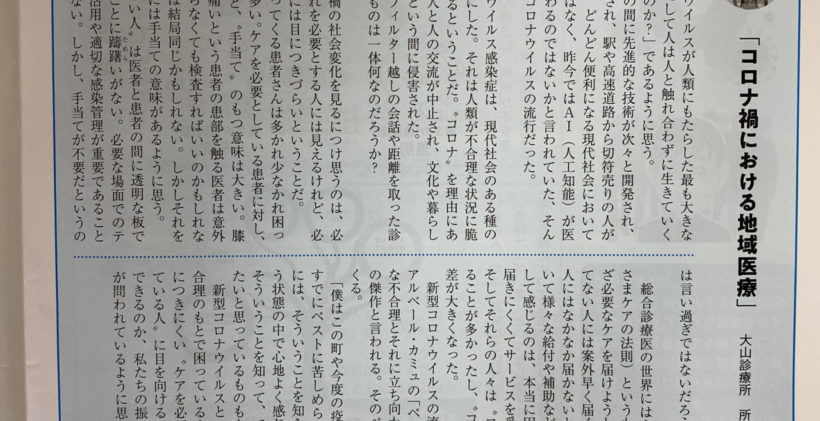 「コロナ禍における地域医療」
大山診療所 所
ウイルスが人類にもたらした最も大きな
して人は人と触れ合わずに生きていく
のか?」であるように思う。
の間に先進的な技術が次々と開発され、
され、駅や高速道路から切符売りの人が
どんどん便利になる現代社会において
はなく、昨今ではAI(人工知能)が医
わるのではないかと言われていた、そん
コロナウイルスの流行だった。
ウイルス感染症は、現代社会のある種の
にした。それは人類が不合理な状況に脆
るということだ。〝コロナ〟を理由にあ
人と人の交流が中止され、文化や暮らし
という間に侵害された。
フィルター越しの会話や距離を取った診
ものは一体何なのだろうか?
禍の社会変化を見るにつけ思うのは、必
れを必要とする人には見えるけれど、必
には目につきづらいということだ。
ってくる患者さんは多かれ少なかれ困っ
多い。ケアを必要としている患者に対し、
と、〝手当て〟のもつ意味は大きい。膝
痛いという患者の患部を触る医者は意外
らなくても検査すればいいのかもしれな
は結局同じかもしれない。しかしそれを
には手当ての意味があるように思う。
い人〟は医者と患者の間に透明な板で
ことに躊躇いがない。必要な場面でのテ
活用や適切な感染管理が重要であること
ない。しかし、手当てが不要だというの
は言い過ぎではないだろう
総合診療医の世界には
さまケアの法則)というも
ざ必要なケアを届けようと
てない人には案外早く届く
人にはなかなか届かないと
いて様々な給付や補助など
して感じるのは、本当に困
届きにくくてサービスを受
そしてそれらの人々は〝コ
ることが多かったし、〝コ
差が大きくなった。
新型コロナウイルスの流
アルベール・カミュの「ペ
な不合理とそれに立ち向か
の傑作と言われる。そのペ
くる。
「僕はこの町や今度の疫
すでにペストに苦しめら
には、そういうことを知ら
う状態の中で心地よく感じ
そういうことを知って、
たいと思っているものも
新型コロナウイルスと
合理のもとで困っている
につきにくい〝ケアを必
ている人〟に目を向ける
できるのか、私たちの振
が問われているように思